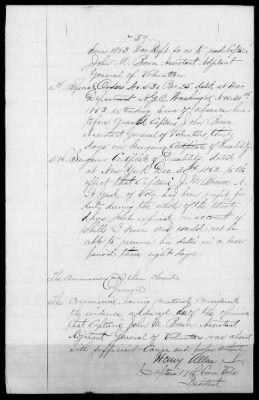 37
series 1863 War Dept. so as to
John M. Brown Assistant Adjutant
General of Volunteers.
5th Special Orders No. 531 Par. 25, dated, at War
Department A.G.O. Washington Nov.
1863 extending leave of absence
granted Captain John Brown
Assistant General of Volunteers, thirty
days on Surgeons Certificate of Disability.
6th Surgeons Certificate of Disability dated
at New York Dec. 1863, to the
effect that Captain J. M. Brown A.
A. Genl. of Vols had been unfit for
duty during the whole of the thirty
days past expired, on account of
Chills & Fever and would not be
able to resume his duties in a less
period than eight days.
The Commission
The Commission, having maturely considered
the evidence adduced, is of the opinion
that Captain John M. Brown Assistant
Adjutant General of Volunteers was absent
with sufficient Cause and proper authority
Henry Allen
Captain 17th Vols
President